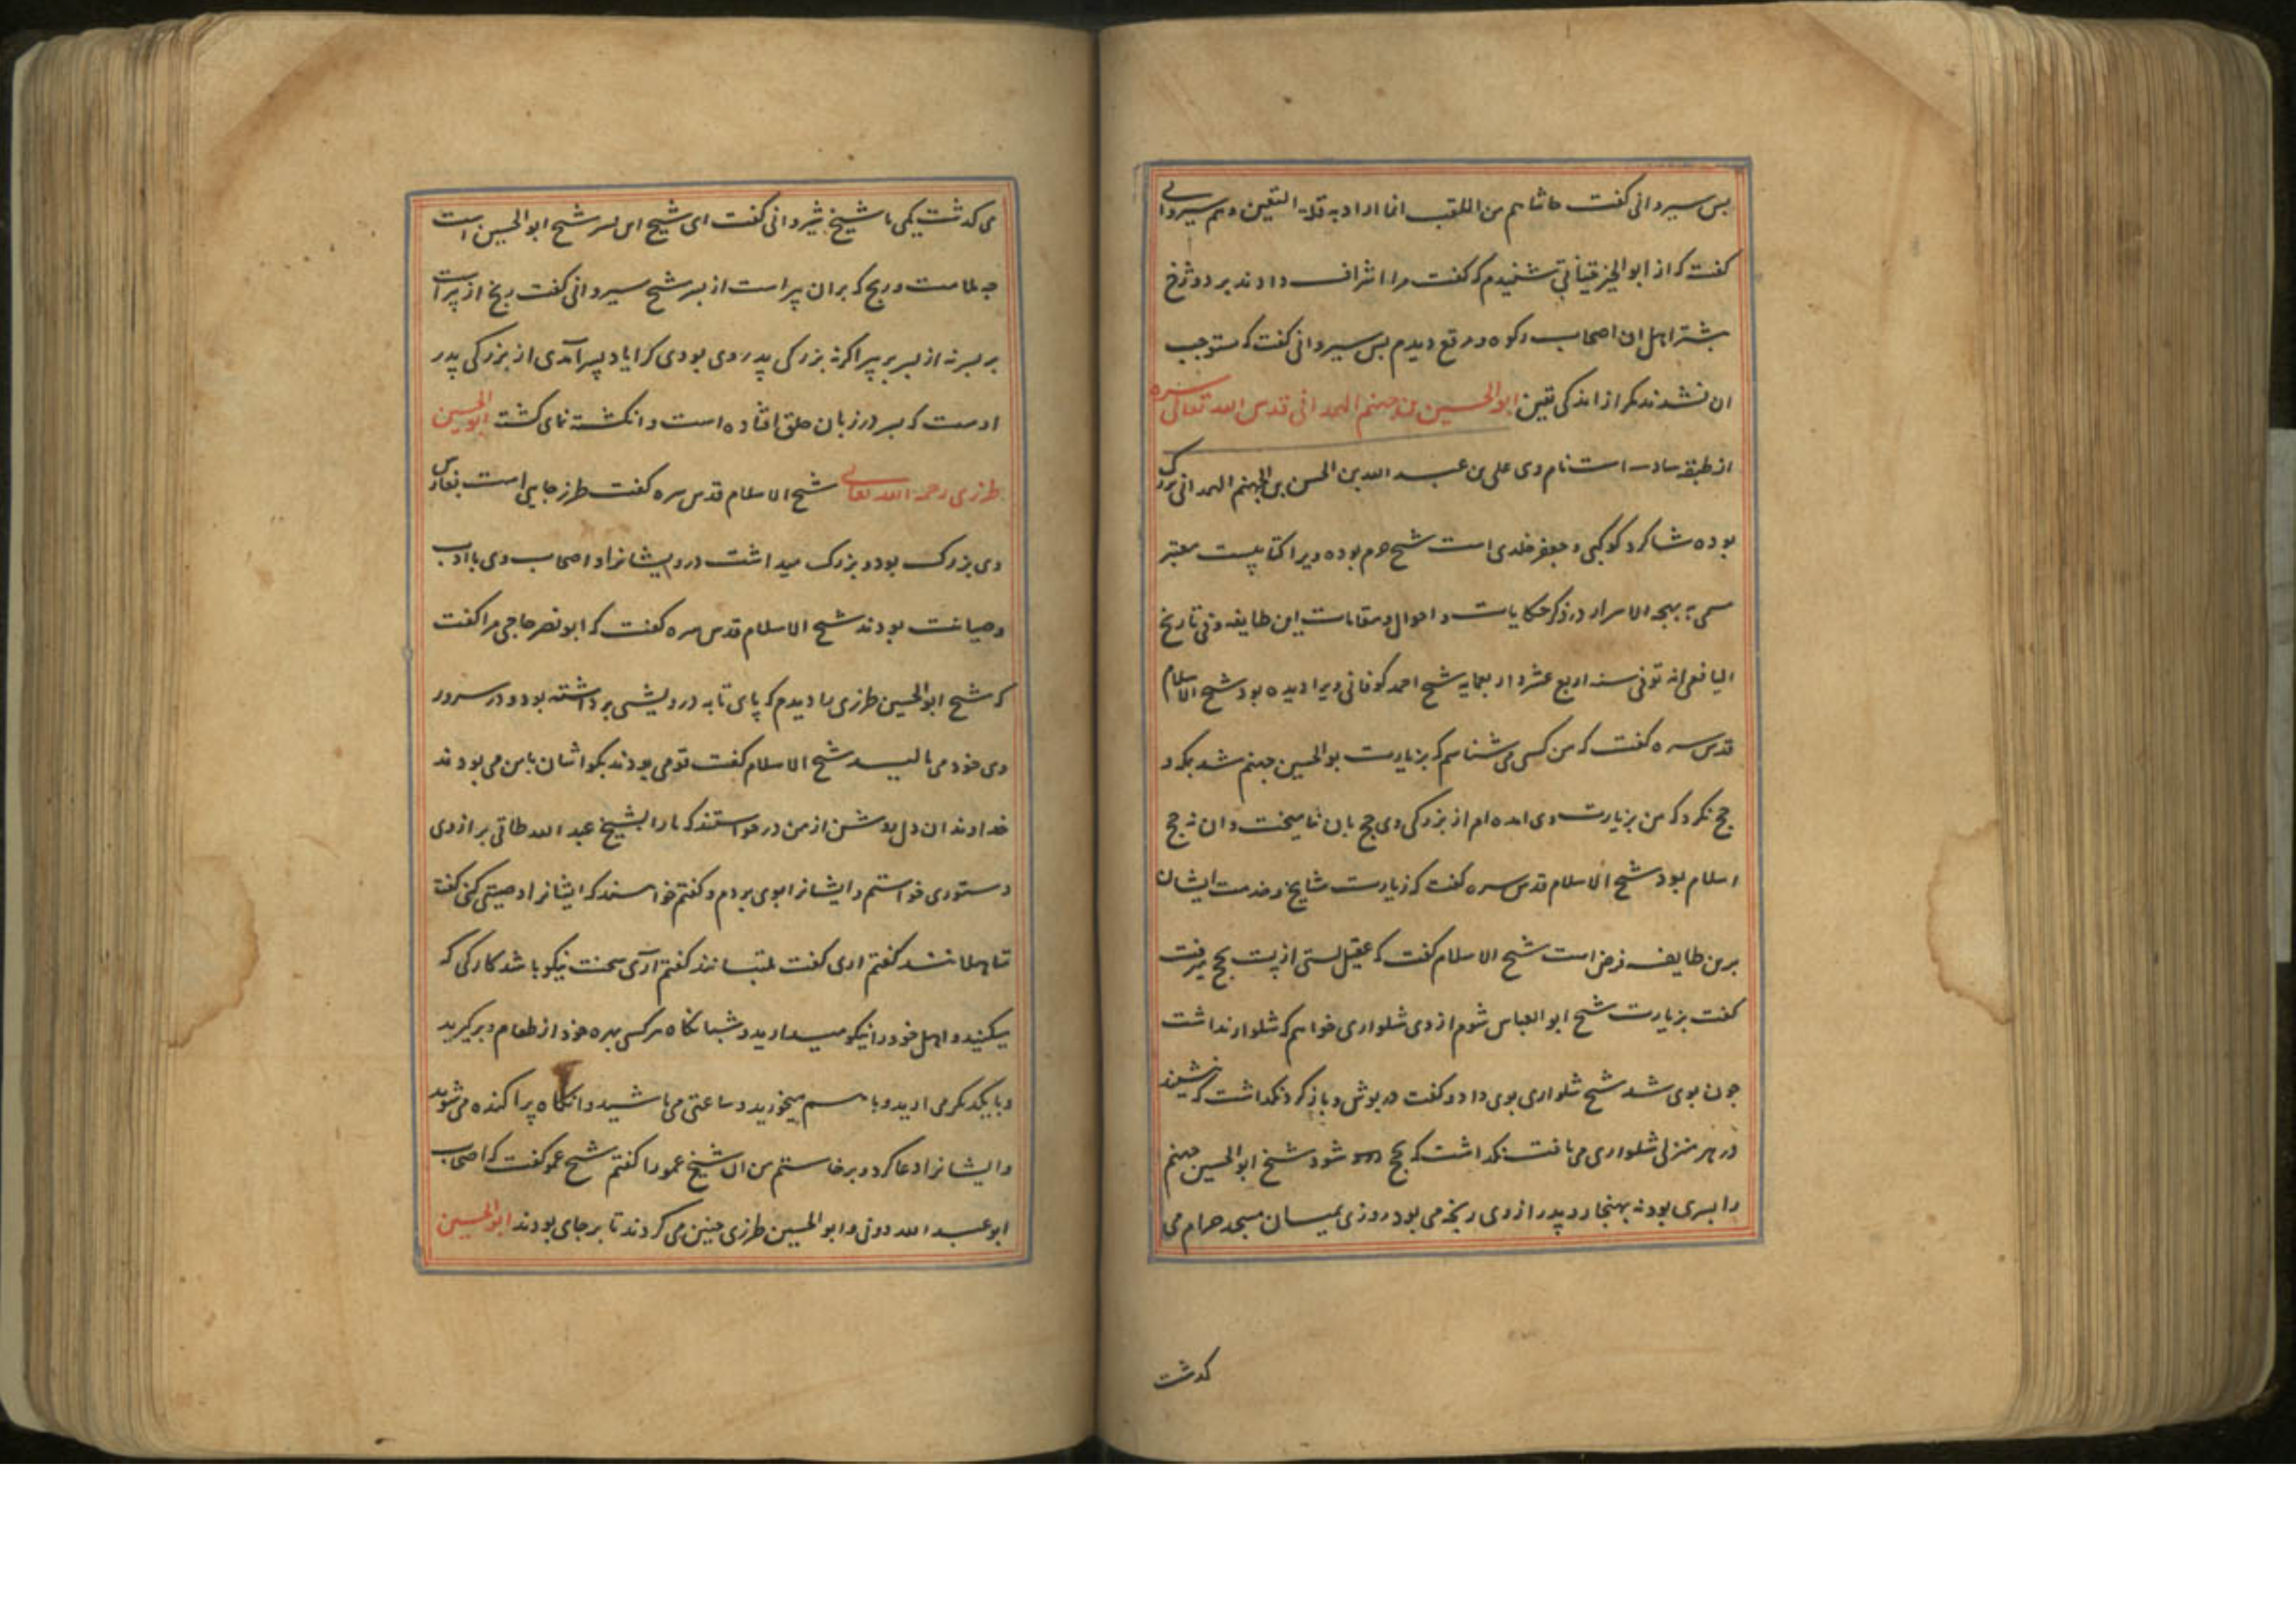 پس سیروانی گفت حاشاهم من الملقب انما اراد به قلة الیقین وهم سیروانی
گفت که از ابو الخیر شنیدم که گفت مرا اشراف دادند بر دوزخ
بیشتر اهل ان اصحاب رکوه ومرقع دیدم پس سیروانی گفت که مستوجب
ان نشدند مکر از اندکی یقین ابو الحسین بن جهضم الهمدانی قدس الله تعالی سره
از طبقه سادسه است نام وی علی بن عبد الله بن الحسن بن الجهضم الهمدانی بزرک
بوده شاکرد کوکبی وجعفر خلدی است شیخ حرم بوده ویرا کتابیست معتبر
مسمی به بهجه الاسرار در ذکر حکایات واحوال ومقامات این طایفه وفی تاریخ
الیافعی انه توفی سنه اربع عشر واربعمایه شیخ احمد کوفانی ویرا دیده بود شیخ الاسلام
قدس سره گفت که من کسی می شناسم که بزیارت بو الحسین جهضم شد بمکه و
حج نکرد که من بزیارت وی امده ام از بزرکی وی حج بان نامیخت وان نه حج
اسلام بود شیخ الاسلام قدس سره گفت که زیارت مشایخ وخدمت ایشان
برین طایفه فرض است شیخ الاسلام گفت که عقیل بستی از بست بحج میرفت
گفت بزیارت شیخ ابو العباس شوم از وی شلواری خواهم که شلوار نداشت
چون بوی شد شیخ شلواری بوی داد وگفت در پوش وباز کرد نکذاشت که بنشیند
در هر منزلی شلواری می یافت نکذاشت که بحج شود شیخ ابو الحسین جهضم
را پسری بود نه بهنجار و پدر از وی رنجه می بود روزی بمیان مسجد حرام می
کدشت
می کدشت یکی با شیخ شیروانی گفت ای شیخ این پسر شیخ ابو الحسین است
چه ملامت ورنج که بران پیر است از پسر شیخ سیروانی گفت رنج از پیر است
بر پسر نه از پسر بر پیر اکر نه بزرکی پدر وی بودی کرا یاد پسر آمدی از بزرکی پدر
اوست که پسر در زبان خلق افتاده است وانکشت نمای کشته ابو الحسین
طرزی رحمه الله تعالی شیخ الاسلام قدس سره گفت طرز جایی است بفارس
وی بزرک بود وبزرک میداشت درویشانرا واصحاب وی با ادب
وصیانت بودند شیخ الاسلام قدس سره گفت که ابو نصر حاجی مرا گفت
که شیخ ابو الحسین طرزی را دیدم که پای تابه درویشی برداشته بود ودر سر ور
وی خود می مالید شیخ الاسلام گفت قومی بودند نیکو ایشان با من می بودند
خداوندان دل روشن از من درخواستند که ما را بشیخ عبد الله طاقی بر از وی
دستوری خواستم وایشانرا بوی بردم وگفتم خواستند که ایشانرا وصیتی کنی گفت
تاهلانند گفتم اری گفت نانند گفتم آری سخت نیکو باشد کارکی که
میکنید واهل خود را نیکو میدارید وشبانکاه هر کسی بهره خود از طعام بر کیرید
وبا یکدیکر می ارید وبا هم میخورید وساعتی می باشید وانکاه پراکنده می شوید
وایشانرا دعا کرد وبرخاستم من ان شیخ عمو را گفتم شیخ عمو گفت که اصحاب
ابو عبد الله دونی وابو الحسین طرزی چنین می کردند تا بر جای بودند ابو الحسین